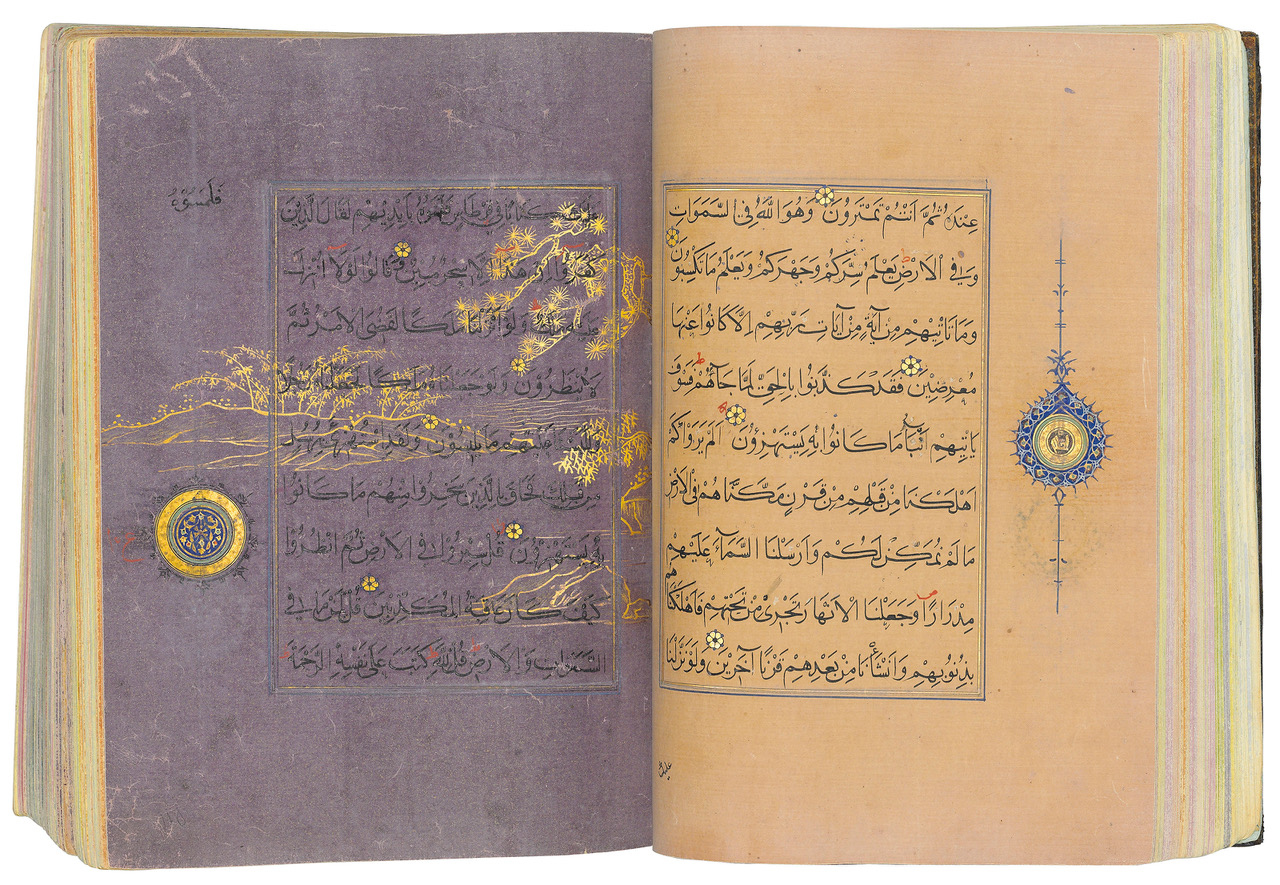 عِنْدَهُ ثُمَّ اَنْتُمْ تَمْتَرُونَ وَهُوَ اللّٰهُ فِي السَّمٰوَاتِ
وَفِي الْاَرْضِ يَعْلَمُ سِرَّكُمْ وَجَهْرَكُمْ وَيَعْلَمُ مَا تَكْسِبُونَ
وَمَا تَاْتِيهِمْ مِنْ آيَةٍ مِنْ آيَاتِ رَبِّهِمْ اِلَّا كَانُوا عَنْهَا
مُعْرِضِينَ فَقَدْ كَذَّبُوا بِالْحَقِّ لَمَّا جَاءَهُمْ فَسَوْفَ
يَاْتِيهِمْ اَنْبَاءُ مَا كَانُوا بِهِ يَسْتَهْزِؤُنَ اَلَمْ يَرَوْا كَمْ
اَهْلَكْنَا مِنْ قَبْلِهِمْ مِنْ قَرْنٍ مَكَّنَّاهُمْ فِي الْاَرْضِ
مَا لَمْ نُمَكِّنْ لَكُمْ وَاَرْسَلْنَا السَّمَآءَ عَلَيْهِمْ
مِدْرَارًا وَجَعَلْنَا الْاَنْهَارَ تَجْرِي مِنْ تَحْتِهِمْ فَاَهْلَكْنَاهُمْ
بِذُنُوبِهِمْ وَاَنْشَأْنَا مِنْ بَعْدِهِمْ قَرْنًا آخَرِينَ وَلَوْ نَزَّلْنَا
عليك
فَلَمَسُوهُ
عَلَيْكَ كِتَابًا فِي قِرْطَاسٍ فَلَمَسُوهُ بِاَيْدِيهِمْ لَقَالَ الَّذِينَ
كَفَرُوا اِنْ هٰذَا اِلَّا سِحْرٌ مُبِينٌ وَقَالُوا لَوْلَا اُنْزِلَ
عَلَيْهِ مَلَكٌ وَلَوْ اَنْزَلْنَا مَلَكًا لَقُضِيَ الْاَمْرُ ثُمَّ
لَا يُنْظَرُونَ وَلَوْ جَعَلْنَاهُ مَلَكًا لَجَعَلْنَاهُ رَجُلًا
وَلَلَبَسْنَا عَلَيْهِمْ مَا يَلْبِسُونَ وَلَقَدِ اسْتُهْزِئَ بِرُسُلٍ
مِنْ قَبْلِكَ فَحَاقَ بِالَّذِينَ سَخِرُوا مِنْهُمْ مَا كَانُوا
بِهِ يَسْتَهْزِؤُنَ قُلْ سِيرُوا فِي الْاَرْضِ ثُمَّ انْظُرُوا
كَيْفَ كَانَ عَاقِبَةُ الْمُكَذِّبِينَ قُلْ لِمَنْ مَا فِي
السَّمٰوَاتِ وَالْاَرْضِ قُلْ لِلّٰهِ كَتَبَ عَلَى نَفْسِهِ الرَّحْمَةَ